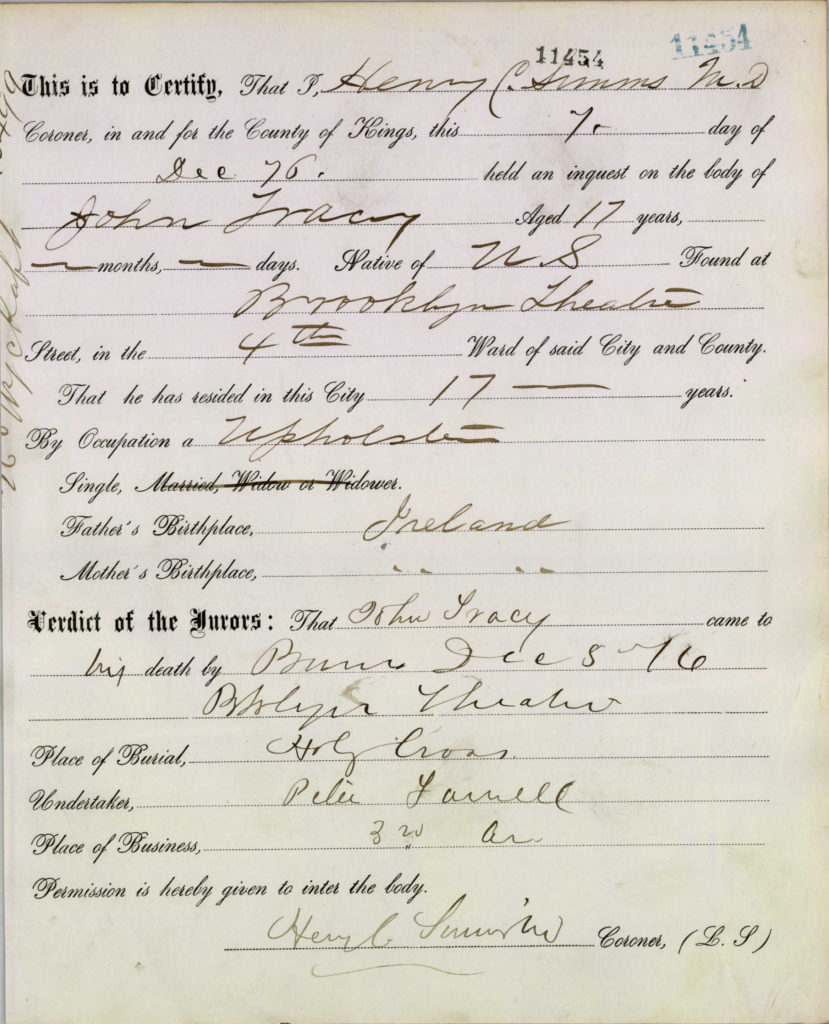 11454 11454
This is to Certify, That I, Henry C. Simms M.D
Coroner, in and for the County of Kings, this 7. day of
Dec 76. held an inquest on the body of
John Tracy Aged 17 years,
— months, — days. Native of U S Found at
Brooklyn Theatre
Street, in the 4th Ward of said City and County.
That he has resided in this City 17 — years.
By Occupation a Upholster
Single, Married, Widow or Widower.
Father's Birthplace, Ireland
Mother's Birthplace, " "
Verdict of the Jurors: That John Tracy came to
his death by Burns Dec 5 76
Bklyn Theatre
Place of Burial, Holy Cross.
Undertaker, Peter Farrell
Place of Business, 3rd Av
Permission is hereby given to inter the body.
Henry C. Simms MD Coroner, (L. S)